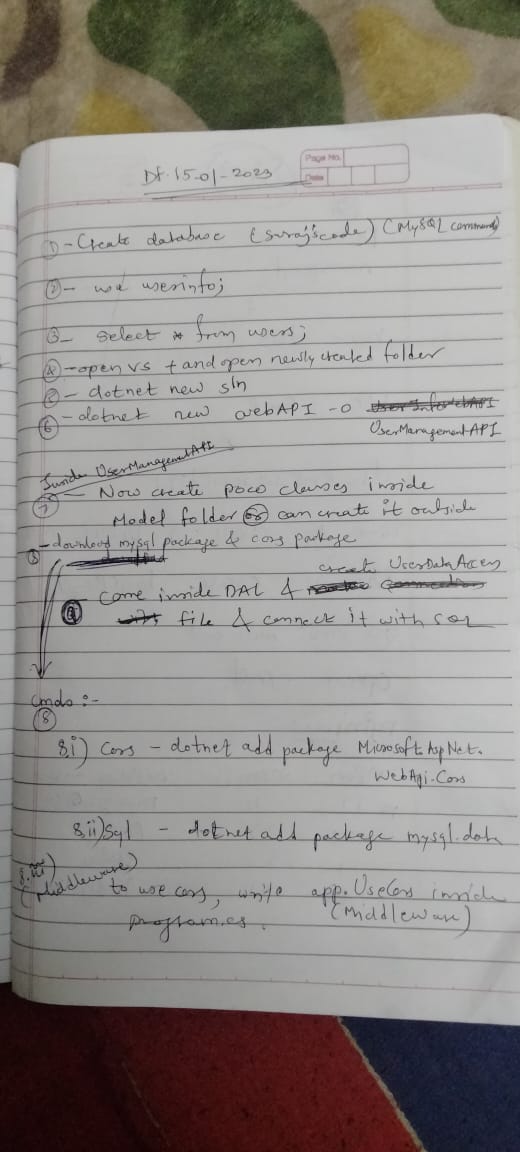 Page No.
Date
Dt. 15-01-2023
① - Create database (suraj's code) (MySQL command)
② - use userinfo;
③ - select * from users;
④ - open vs + and open newly created folder
⑤ - dotnet new sln
⑥ - dotnet new webAPI -o
UserManagementAPI
Inside UserManagementAPI
⑦ - Now create poco classes inside
Model folder or can create it outside
⑧ - download mysql package & cors package
create UserDataAccess
⑨ - Come inside DAL &
file & connect it with sql
Cmds :-
⑧
8.i) Cors - dotnet add package Microsoft.AspNet.
WebApi.Cors
8.ii) Sql - dotnet add package mysql.data
8.iii)
(Middleware) to use cors, write app.UseCors inside
(Middleware)
program.cs.